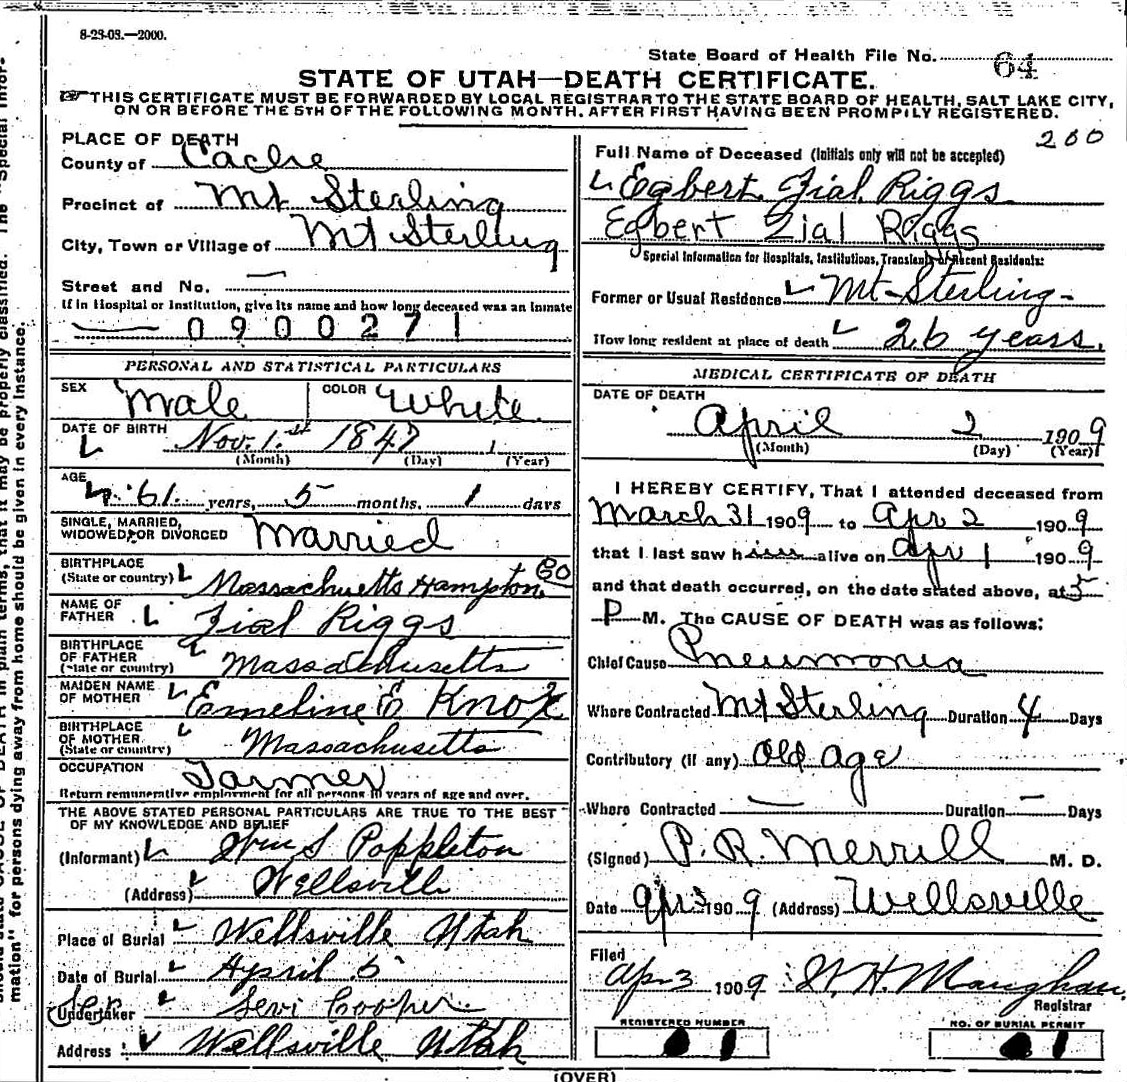 8-23-08.—2000.
State Board of Health File No. 64
STATE OF UTAH—DEATH CERTIFICATE.
THIS CERTIFICATE MUST BE FORWARDED BY LOCAL REGISTRAR TO THE STATE BOARD OF HEALTH, SALT LAKE CITY,
ON OR BEFORE THE 5TH OF THE FOLLOWING MONTH, AFTER FIRST HAVING BEEN PROMPILY REGISTERED.
PLACE OF DEATH
County of Cache
Precinct of Mt Sterling
City, Town or Village of Mt Sterling
Street and No. —
If in Hospital or Institution, give its name and how long deceased was an inmate
— 0900271
PERSONAL AND STATISTICAL PARTICULARS
SEX Male COLOR White
DATE OF BIRTH Nov. 1.st 1847
(Month) (Day) (Year)
AGE 61 years, 5 months, 1 days
SINGLE, MARRIED,
WIDOWED, OR DIVORCED Married
BIRTHPLACE
(State or country) Massachusetts Hampton 80
NAME OF
FATHER Zial Riggs
BIRTHPLACE
OF FATHER
(State or country) Massachusetts
MAIDEN NAME
OF MOTHER Emeline E Knox
BIRTHPLACE
OF MOTHER
(State or country) Massachusetts
OCCUPATION Farmer
Return remunerative employment for all persons 10 years of age and over.
THE ABOVE STATED PERSONAL PARTICULARS ARE TRUE TO THE BEST
OF MY KNOWLEDGE AND BELIEF
(Informant) Wm S Poppleton
(Address) Wellsville
Place of Burial Wellsville Utah
Date of Burial April 5
Undertaker Levi Cooper
Address Wellsville Utah
200
Full Name of Deceased (Initials only will not be accepted)
Egbert Zial Riggs
Egbert Zial Riggs
Special Information for Hospitals, Institutions, Transients or Recent Residents:
Former or Usual Residence Mt-Sterling-
How long resident at place of death 26 years.
MEDICAL CERTIFICATE OF DEATH
DATE OF DEATH
April 2 1909
(Month) (Day) (Year)
I HEREBY CERTIFY, That I attended deceased from
March 31 1909 to Apr 2 1909
that I last saw him alive on Apr 1 1909
and that death occurred, on the date stated above, at 5
P M. The CAUSE OF DEATH was as follows:
Chief Cause Pneumonia
Where Contracted Mt Sterling Duration 4 Days
Contributory (if any) Old Age
Where Contracted — Duration — Days
(Signed) P. R. Merrill M. D.
Date Apr 3 1909 (Address) Wellsville
Filed
Apr 3 1909 W. H. Maughan
Registrar
REGISTERED NUMBER
NO. OF BURIAL PERMIT
(OVER)
mation" for persons dying away from home should be given in every instance.